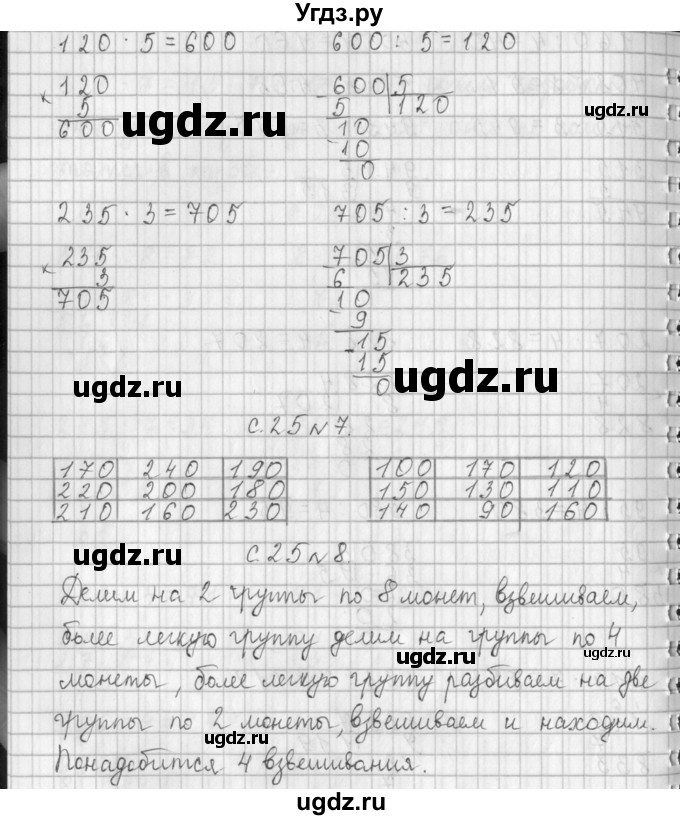 Угдз.ру
120 · 5 = 600    600 : 5 = 120
× 120    - 600 | 5
5    5 | 120
600    - 10
ugdz.ru    ugdz.ru
10
0
235 · 3 = 705    705 : 3 = 235
× 235    - 705 | 3
3    6 | 235
705    - 10
9
- 15
15
ugdz.ru    ugdz.ru
0
с. 25 № 7.
170 240 190    100 170 120
220 200 180    150 130 110
210 160 230    140 90 160
ugdz.ru    ugdz.ru
с. 25 № 8.
Делим на 2 группы по 8 монет, взвешиваем,
более легкую группу делим на группы по 4
ugdz.ru
монеты, более легкую группу разбиваем на две
группы по 2 монеты, взвешиваем и находим.
ugdz.ru
Понадобится 4 взвешивания.
ugdz.ru